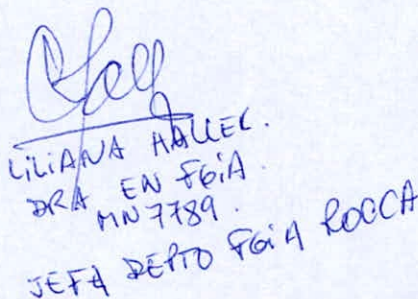 LILIANA HALLEC.
DRA EN FGIA.
MN 7789.
JEFA DEPTO FGIA ROCCA